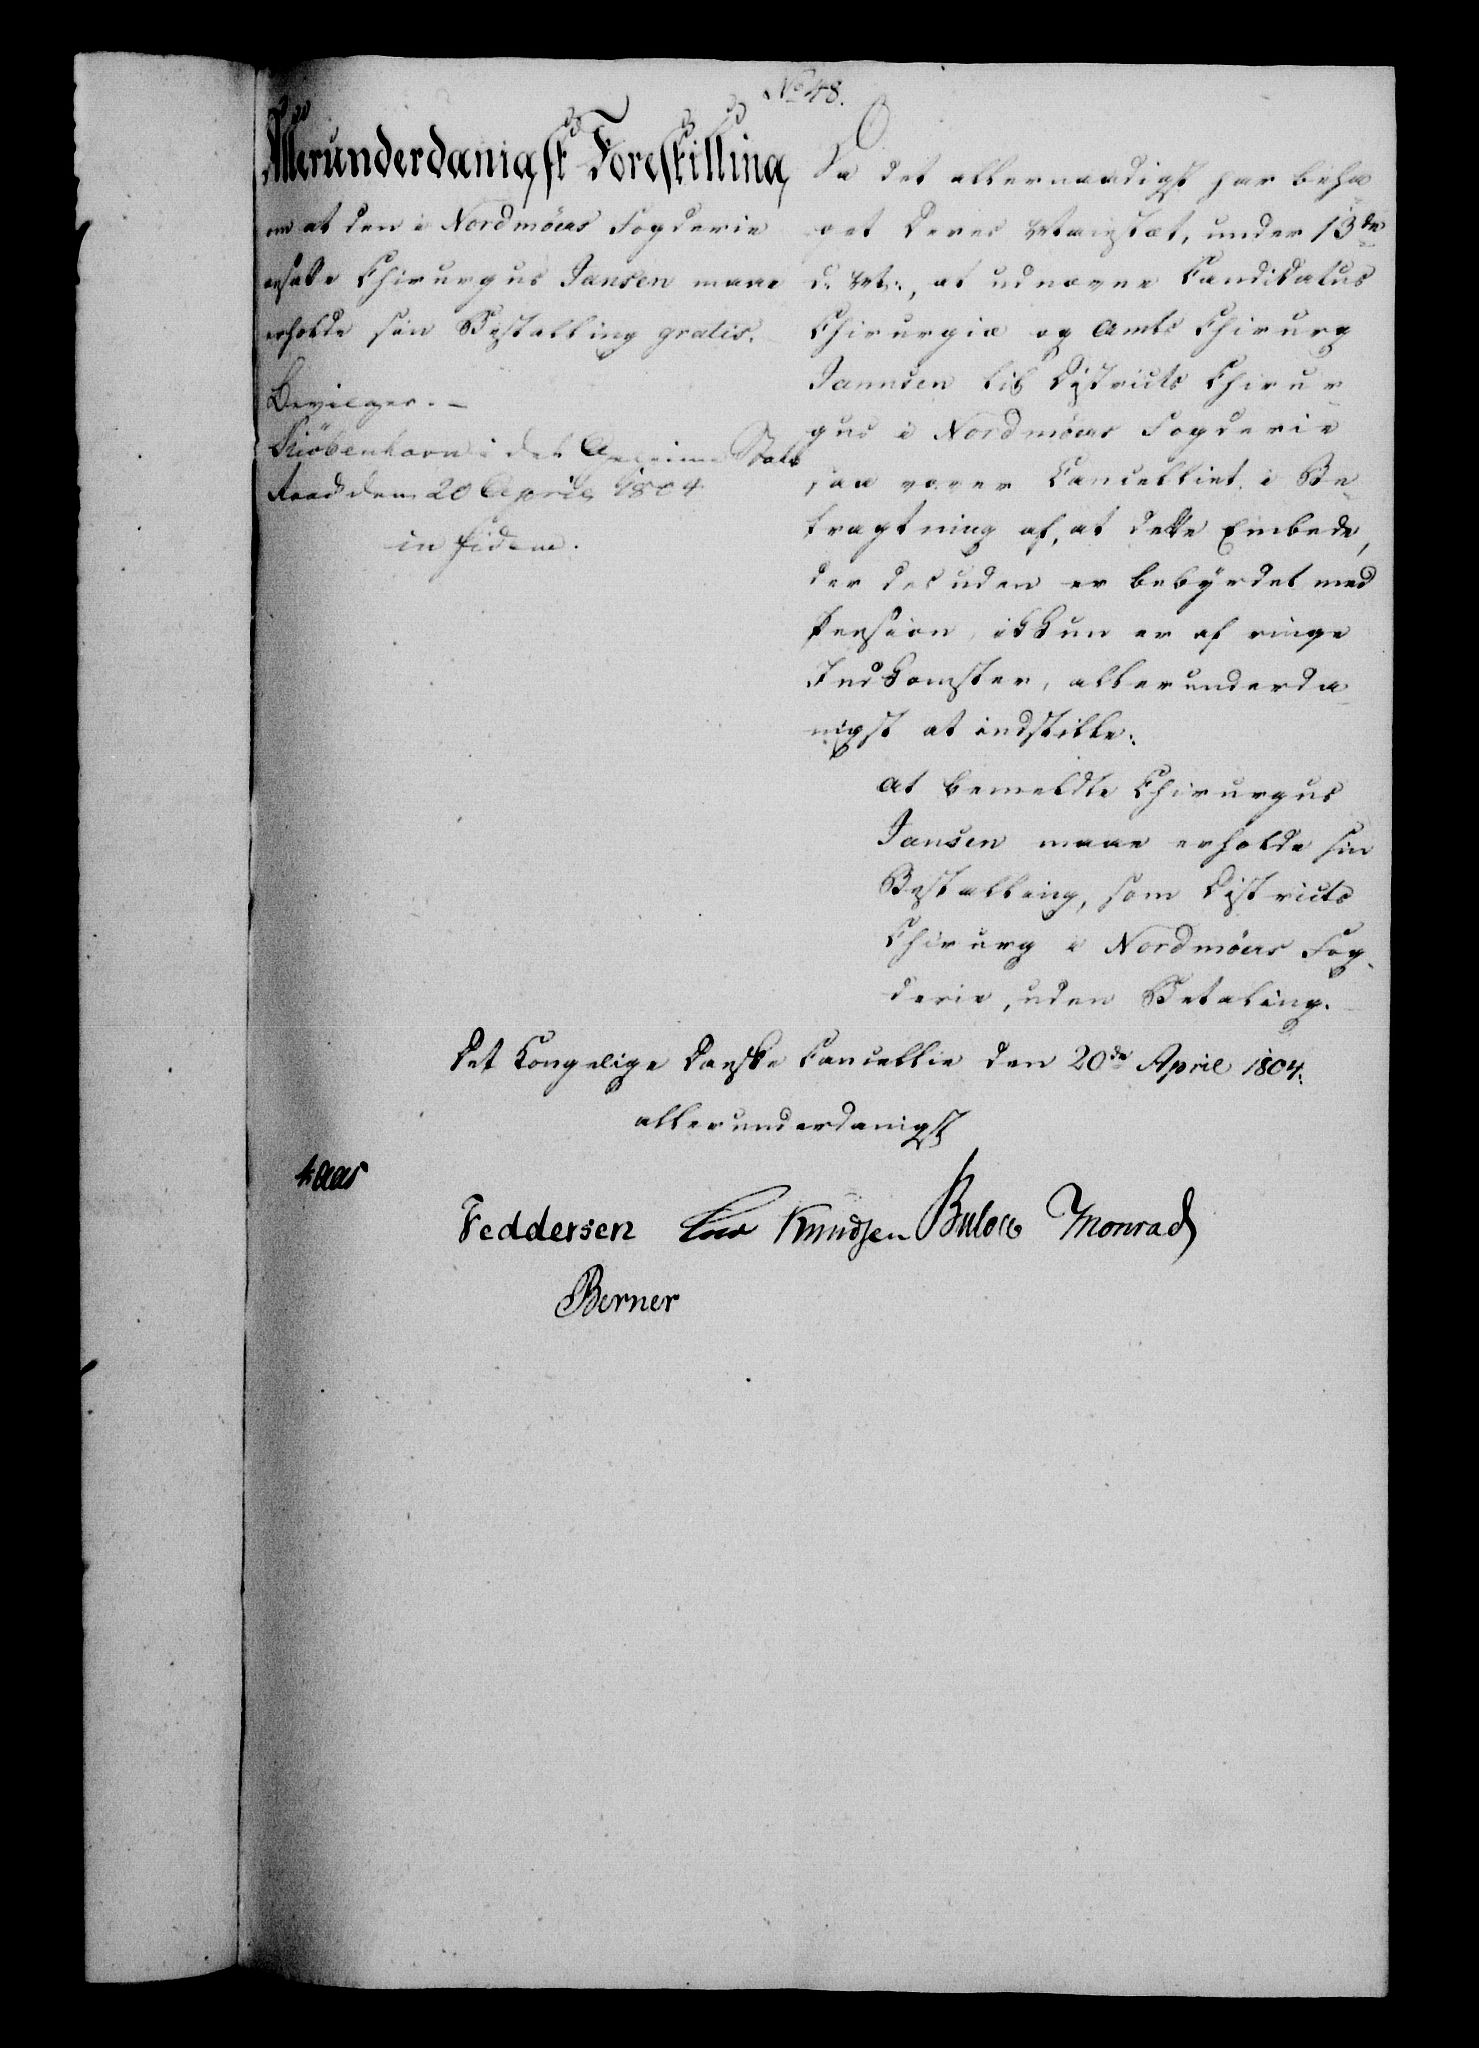 No 48.
Allerunderdanigst Forestilling
om at den i Nordmöers Fogderie
ansatte Chirurgus Jansen maae
erholde sin Bestalling gratis.
Bevilges. —
Kiöbenhavn i det Geheime Stats
Raad den 20 April 1804
in fidem.
Da det allernaadigst har beha-
get Deres Majestæt, under 13de
d: M:, at udnævne Candidatus
Chirurgiæ og Amts Chirurg
Jannsen til Districts Chirur-
gus i Nordmöers Fogderie
saa vover Cancelliet, i Be-
tragtning af, at dette Embede,
der desuden er bebyrdet med
Pension, ikkun er af ringe
Indkomster, allerunderda-
nigst at indstille:
at bemeldte Chirurgus
Jansen maae erholde sin
Bestalling, som Districts
Chirurg i Nordmöers Fog-
derie, uden Betaling.
Det Kongelige Danske Cancellie den 20de April 1804.
allerunderdanigst
Kaas
Feddersen Knudsen Bülow Monrad
Berner